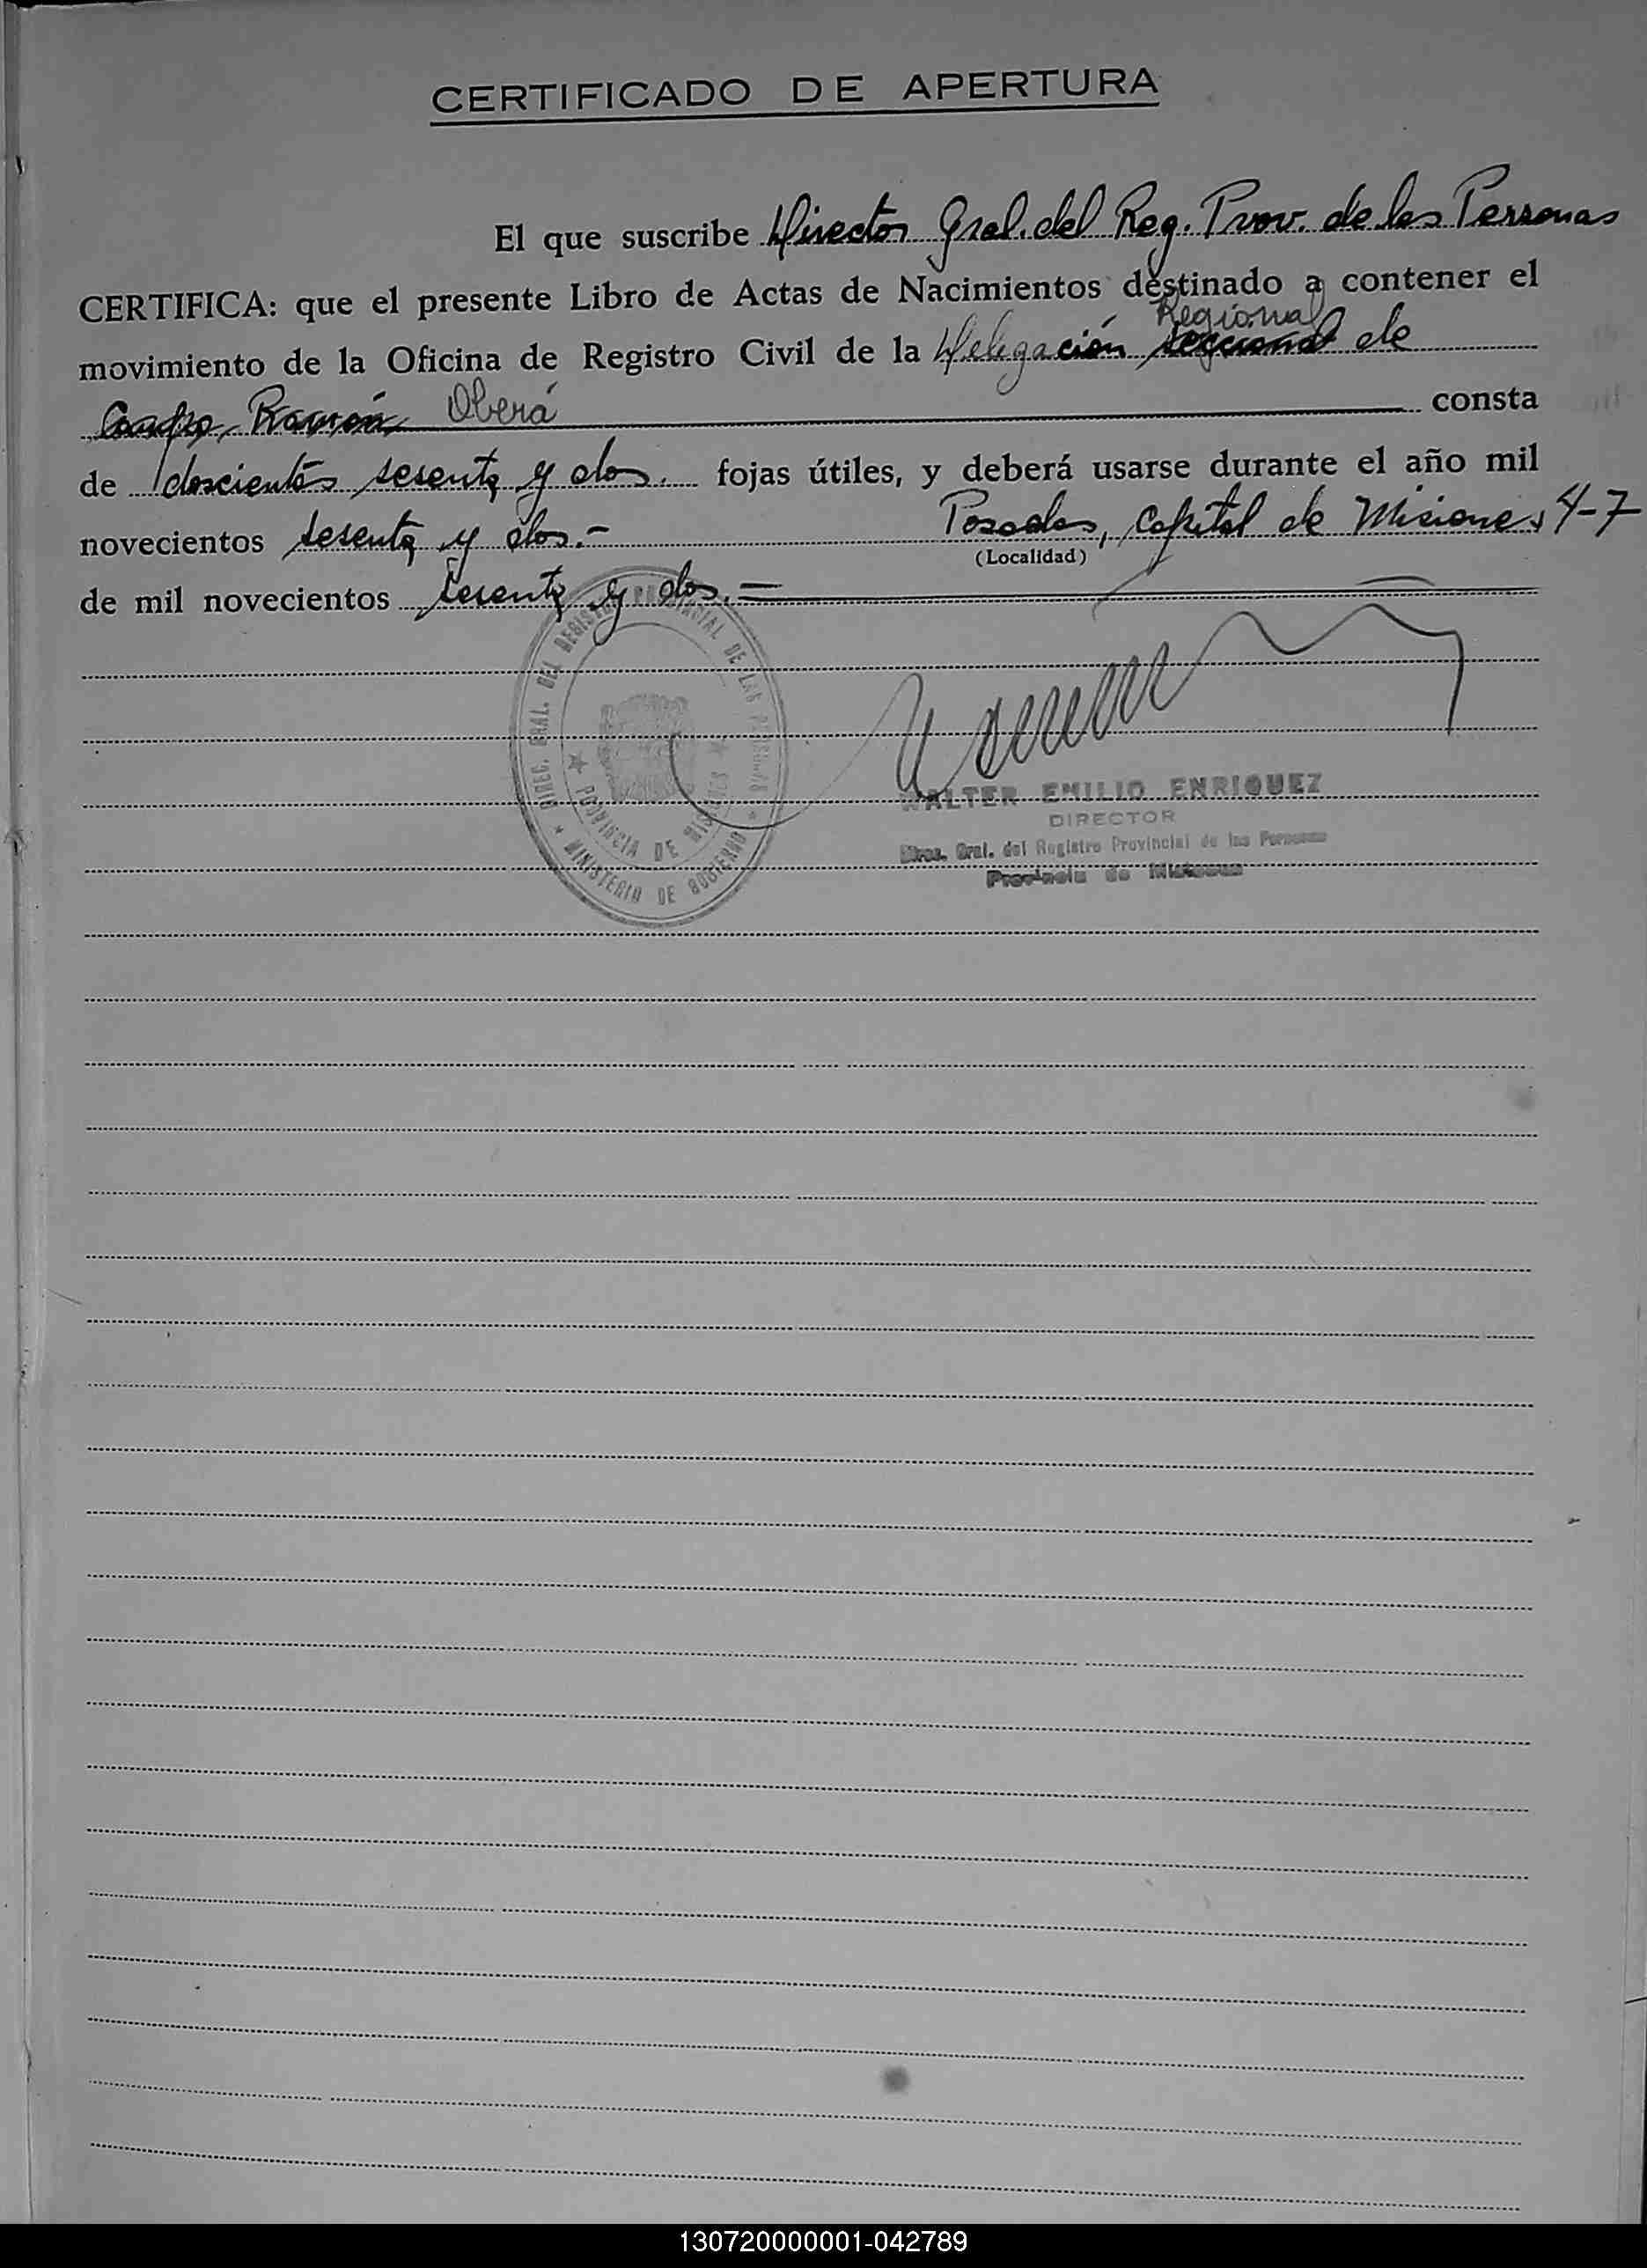 CERTIFICADO DE APERTURA
El que suscribe Director Gral. del Reg. Prov. de las Personas
CERTIFICA: que el presente Libro de Actas de Nacimientos destinado a contener el
Regional
movimiento de la Oficina de Registro Civil de la Delegación seccional de
Campo Ramón Oberá consta
de doscientos sesenta y dos. fojas útiles, y deberá usarse durante el año mil
novecientos sesenta y dos.- Posadas, Capital de Misiones 4-7
(Localidad)
de mil novecientos sesenta y dos.=
DIREC. GRAL. DEL REGISTRO PROVINCIAL DE LAS PERSONAS
★ PROVINCIA DE MISIONES ★
★ MINISTERIO DE GOBIERNO ★
WALTER EMILIO ENRIQUEZ
DIRECTOR
Direc. Gral. del Registro Provincial de las Personas
Provincia de Misiones
130720000001-042789